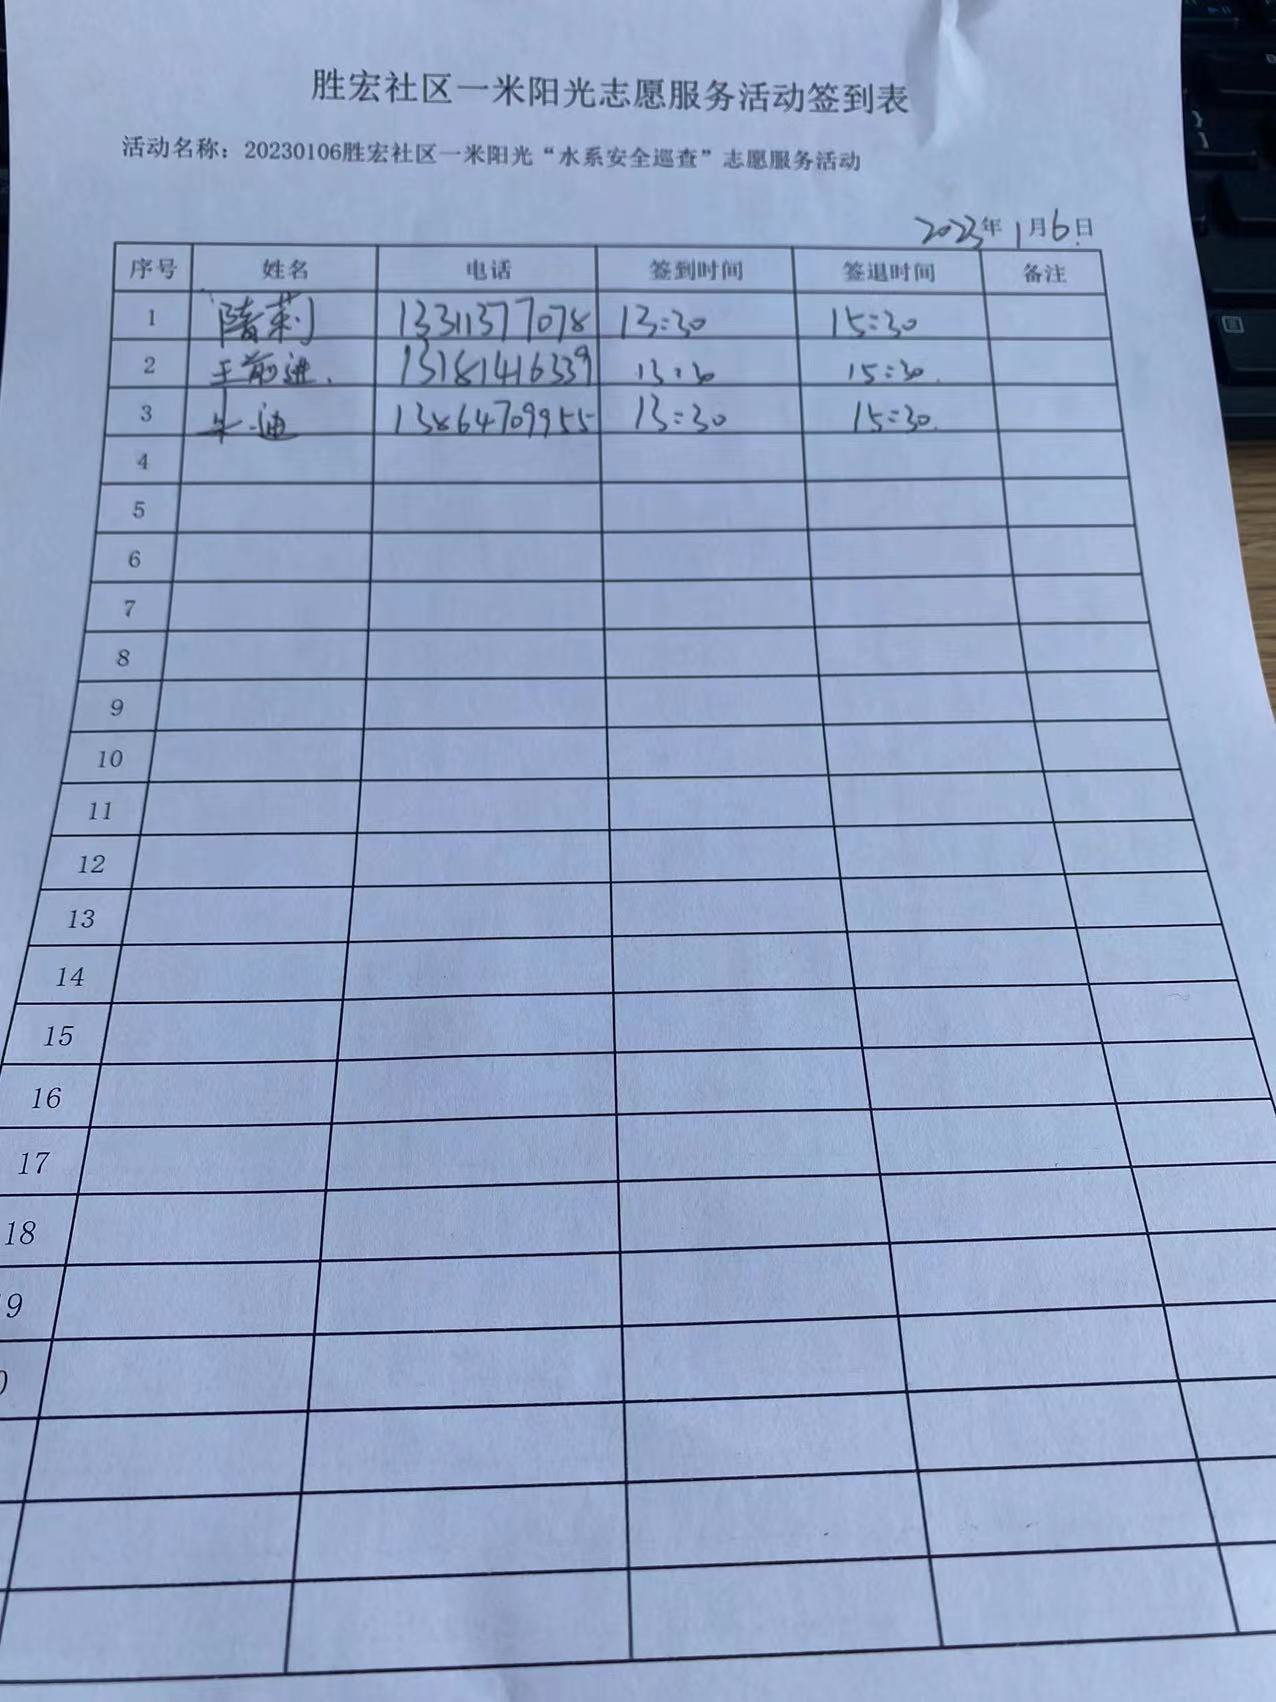 胜宏社区一米阳光志愿服务活动签到表
活动名称：20230106胜宏社区一米阳光“水系安全巡查”志愿服务活动
2023年1月6日
序号 姓名 电话 签到时间 签退时间 备注
1 隋莉 13311377078 13:30 15:30
2 王前进. 13181416339 13:30 15:30.
3 朱迪 13864709955 13:30 15:30.
4
5
6
7
8
9
10
11
12
13
14
15
16
17
18
9
0